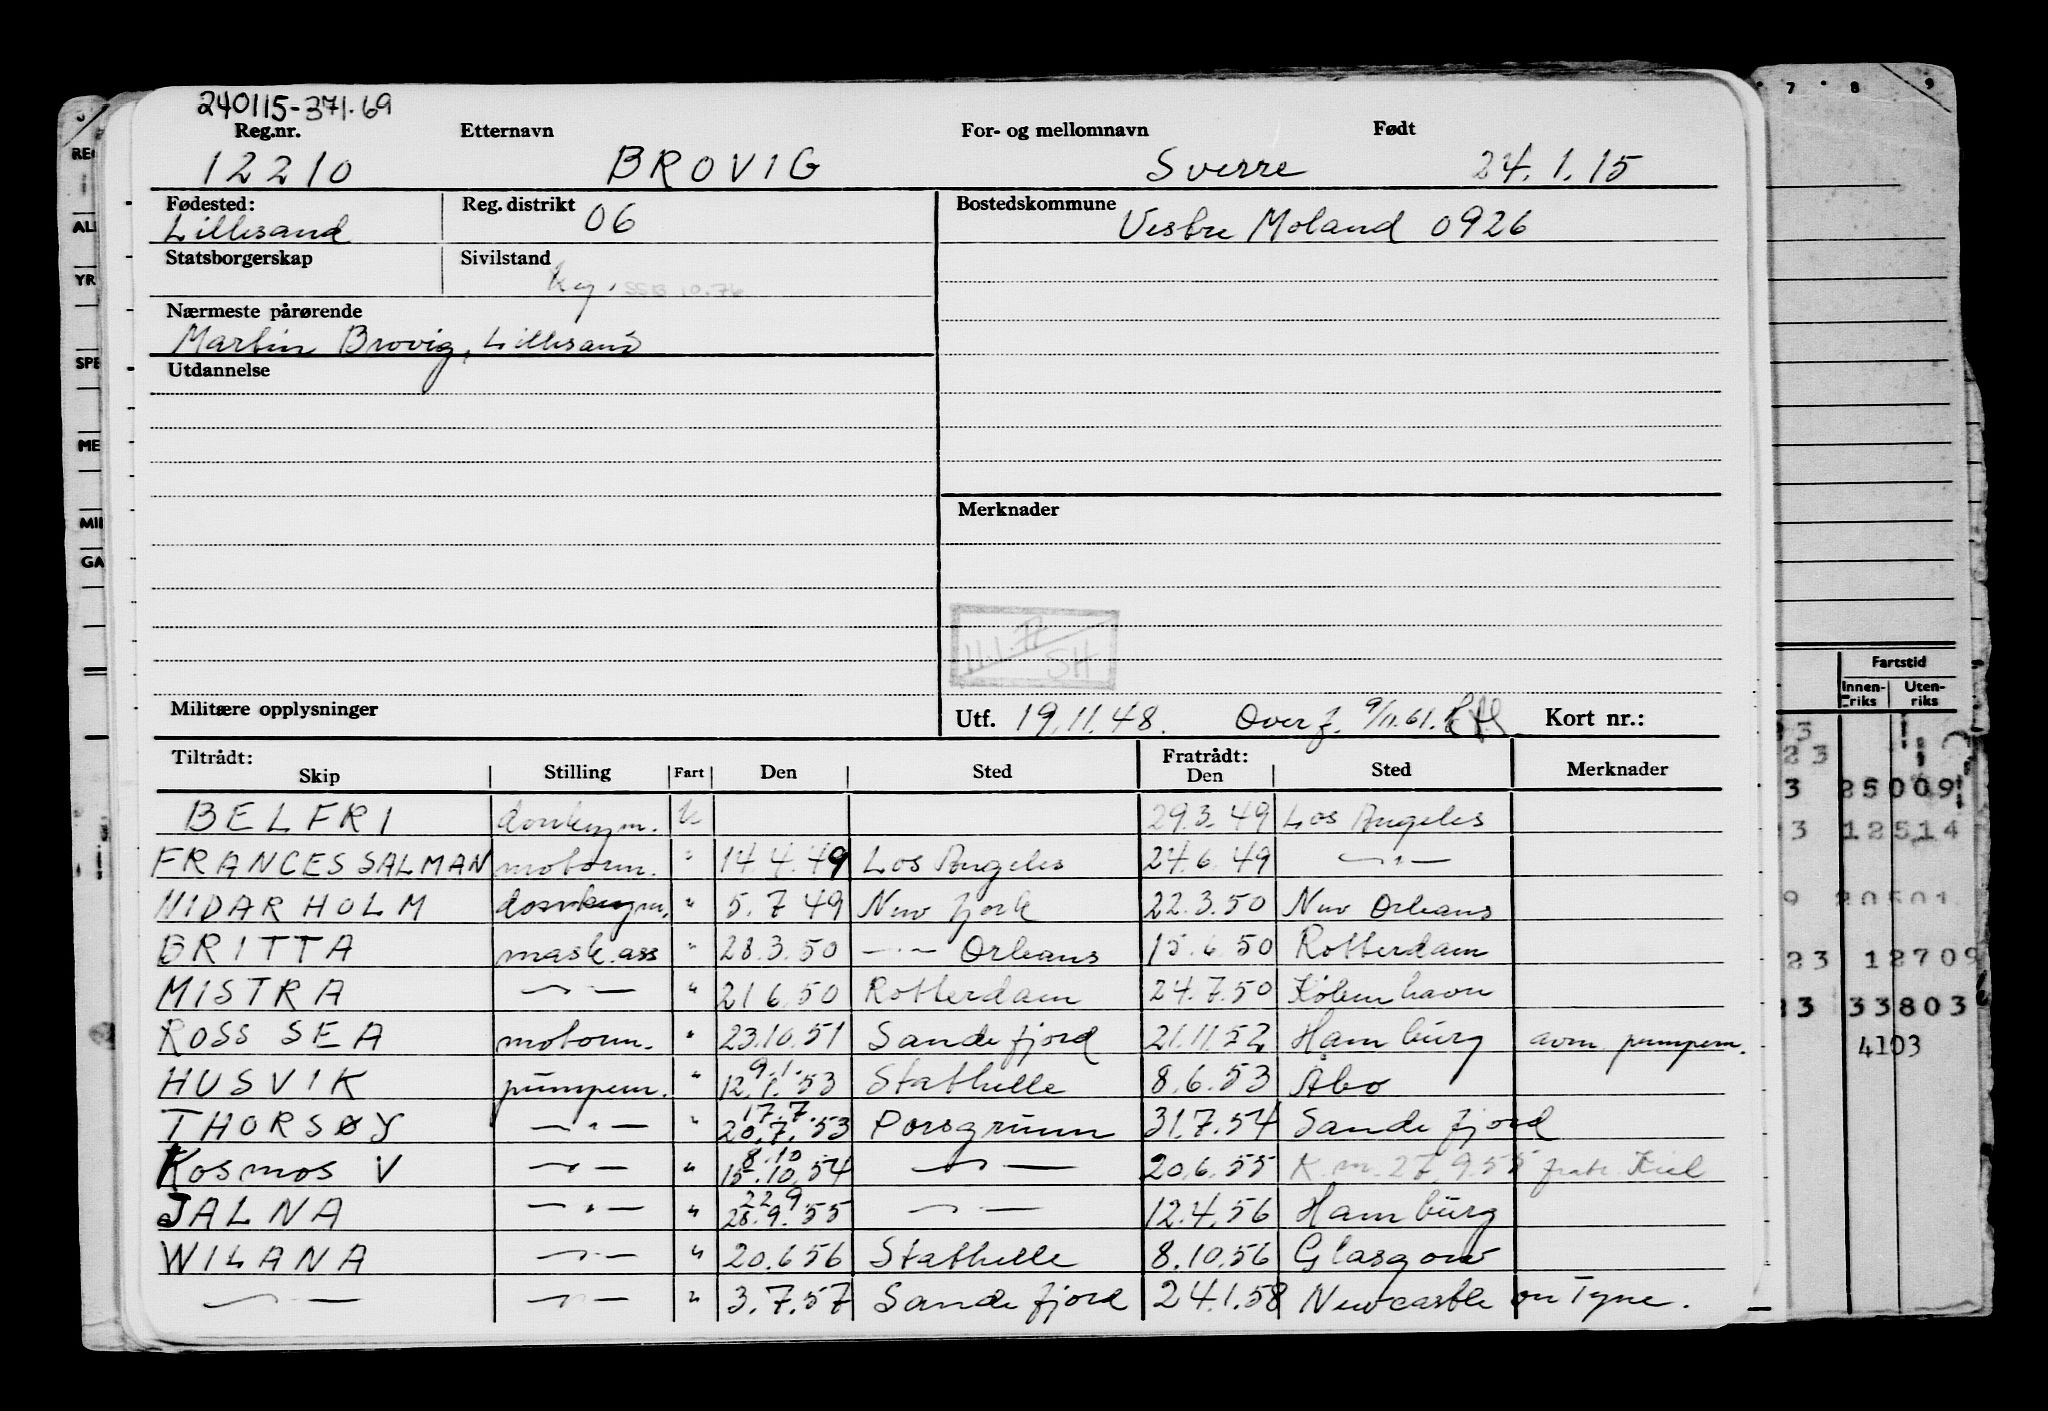 240115-371.69
Reg.nr. Etternavn For- og mellomnavn Født
12210 BROVIG Sverre 24.1.15
Fødested: Reg. distrikt 06 Bostedskommune
Lillesand Vestre Moland 0926
Statsborgerskap Sivilstand
SSB 10.76
Nærmeste pårørende
Martin Brovig, Lillesand
Utdannelse
Merknader
11.1.77
SH
Militære opplysninger Utf. 19.11.48. Overf. 9/11.61. Kort nr.:
Tiltrådt: Fratrådt:
Skip Stilling Fart Den Sted Den Sted Merknader
BELFRI donkeym. u 29.3.49 Los Angeles
FRANCES SALMAN motorm. " 14.4.49 Los Angeles 24.6.49 — " —
NIDARHOLM donkeym. " 5.7.49 New Jork 22.3.50 New Orleans
BRITTA mask.ass " 28.3.50 — " — Orleans 15.6.50 Rotterdam
MISTRA — " — " 21.6.50 Rotterdam 24.7.50 Købmhavn
ROSS SEA motorm. " 23.10.51 Sandefjord 21.11.52 Hamburg avm. pumpem.
9.1.
HUSVIK pumpem. " 12.1.53 Stathelle 8.6.53 Åbo
17.7.
THORSØY — " — " 20.7.53 Porsgrunn 31.7.54 Sandefjord
8.10
KOSMOS V — " — " 15.10.54 — " — 20.6.55 K.m. 27.9.55 fratr. Kiel
22.9
JALNA — " — " 28.9.55 — " — 12.4.56 Hamburg
WILANA — " — " 20.6.56 Stathelle 8.10.56 Glasgow
— " — — " — " 3.7.57 Sandefjord 24.1.58 Newcastle on Tyne.
RE
AL
YR
SPE
ME
MIL
GA
7 8 9
Fartstid
Innen-riks Uten-riks
23
3 25009
3 12514
9 20501
23 12709
23 33803
4103